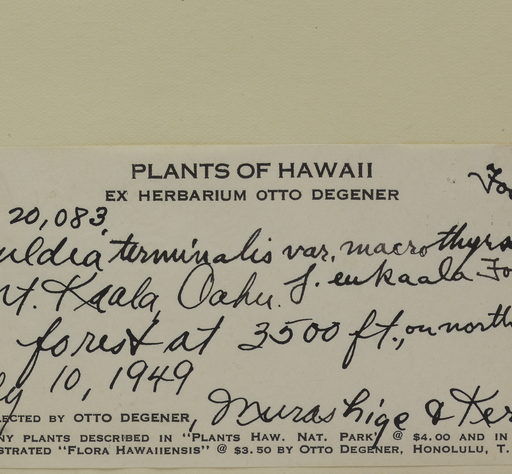 PLANTS OF HAWAII
EX HERBARIUM OTTO DEGENER
20,083
uldia terminalis var. macrothyrs
nt. Kaala, Oahu. f. eukaala Fo
forest at 3500 ft., on north
10, 1949
LECTED BY OTTO DEGENER, Murashige & Ker
NY PLANTS DESCRIBED IN "PLANTS HAW. NAT. PARK" @ $4.00 AND IN
STRATED "FLORA HAWAIIENSIS" @ $3.50 BY OTTO DEGENER, HONOLULU, T.